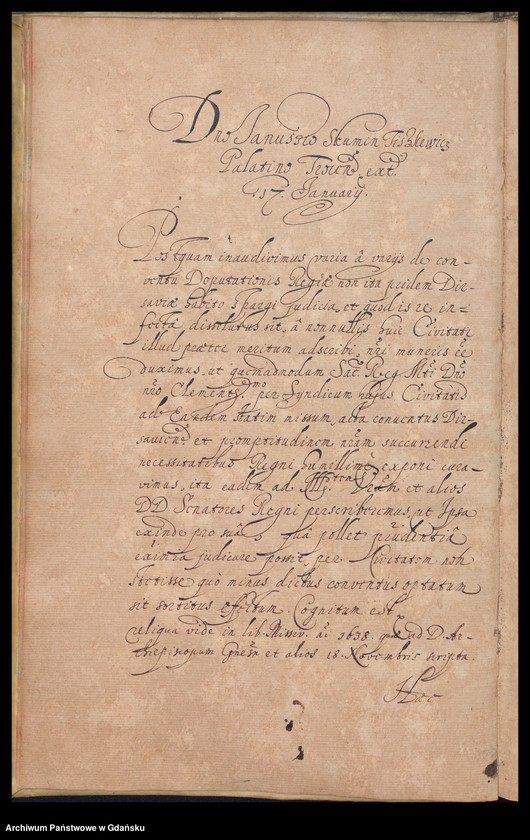 Dno Januszio Skumin Tiszkewicz
Palatino Trocen. exāt.
17. January.
Postquam inaudivimus varia à varys de con-
ventu Deputationis Regiæ non ita pridem Dir-
saviæ habito spargi judicia, et quod is re in-
fecta dissolutus sit, â nonnullis huic Civitati
illud præter meritum adscribi, nri muneris eē
duximus, ut quemadmodum Sac. Reg. Mti Dno
nro Clementsmo. per Syndicum hujus Civitatis
ad Eandem statim missum, acta conventus Dir-
savien. et promptitudinem nram succurrendi
necessitatibus Regni humillimè exponi cura-
vimus, ita eadem ad Vram et alios
DD Senatores Regni perscriberemus, ut Ipsa
exinde pro suâ quâ pollet prudentiâ
eximia judicare possit, per Civitatem non
stetisse quo minus dictus conventus optatum
sit sortitus effectum. Cognitum est
reliqua vide in lib. Missiv. ai 1638. quæ ad D. Ar-
chiepiscopum Gnesn et alios 18. Novembris scripta.
Hæc
Archiwum Państwowe w Gdańsku